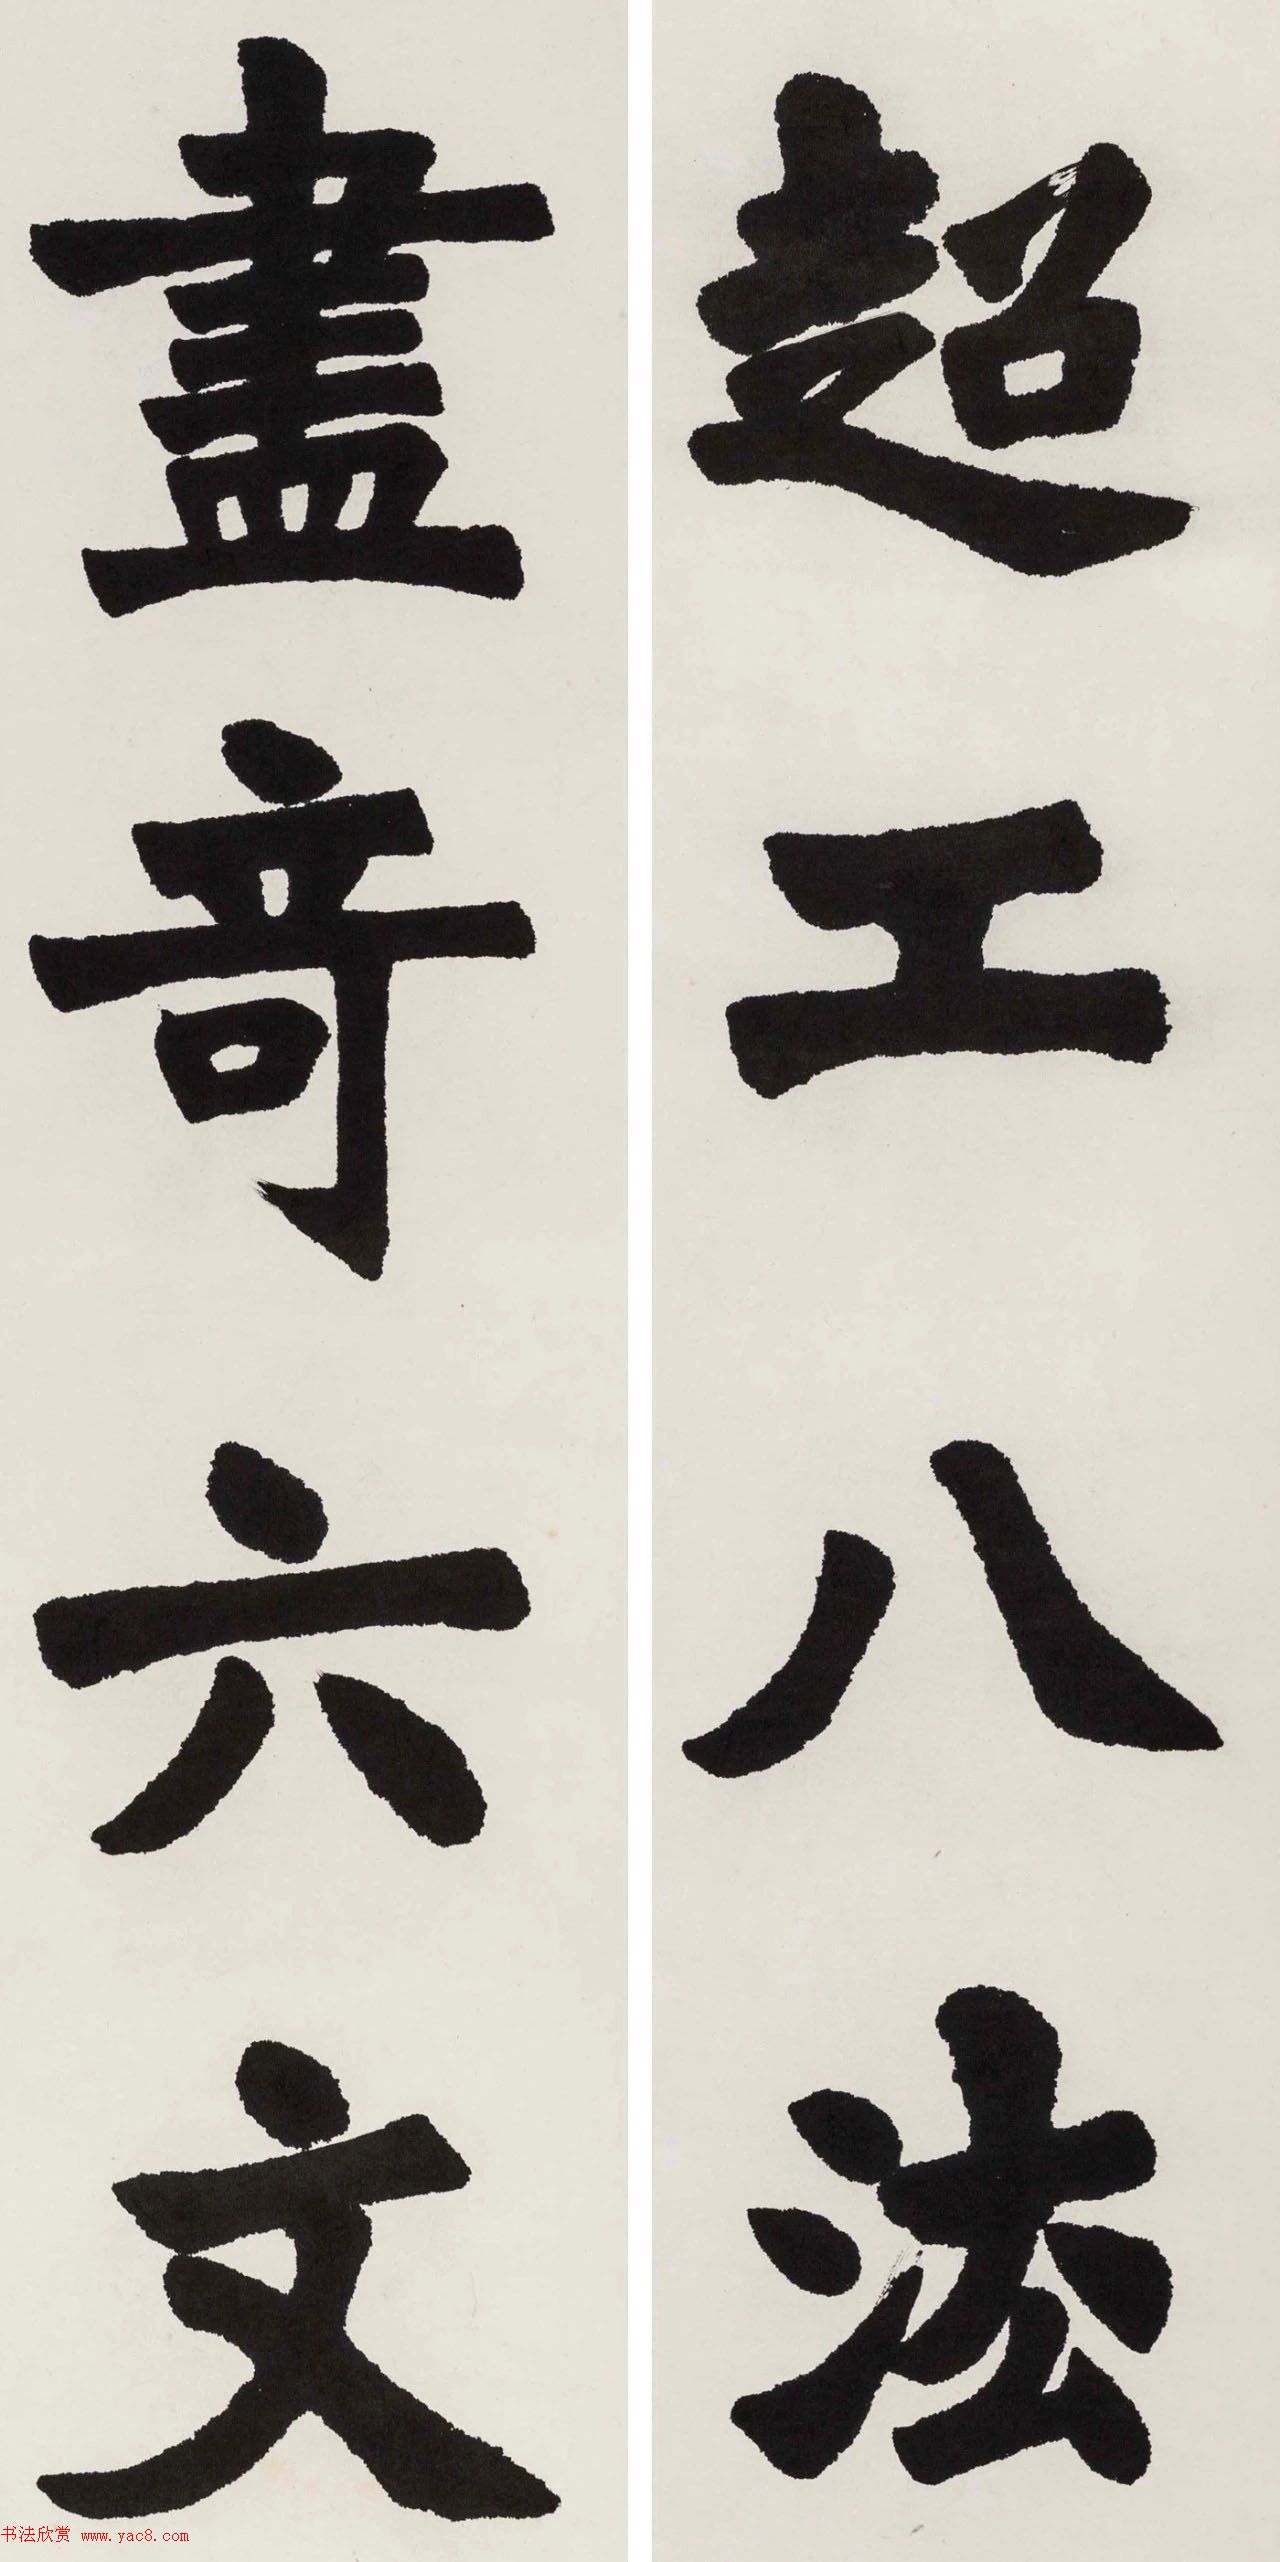 超工八法
盡奇六文
书法欣赏 www.yac8.com